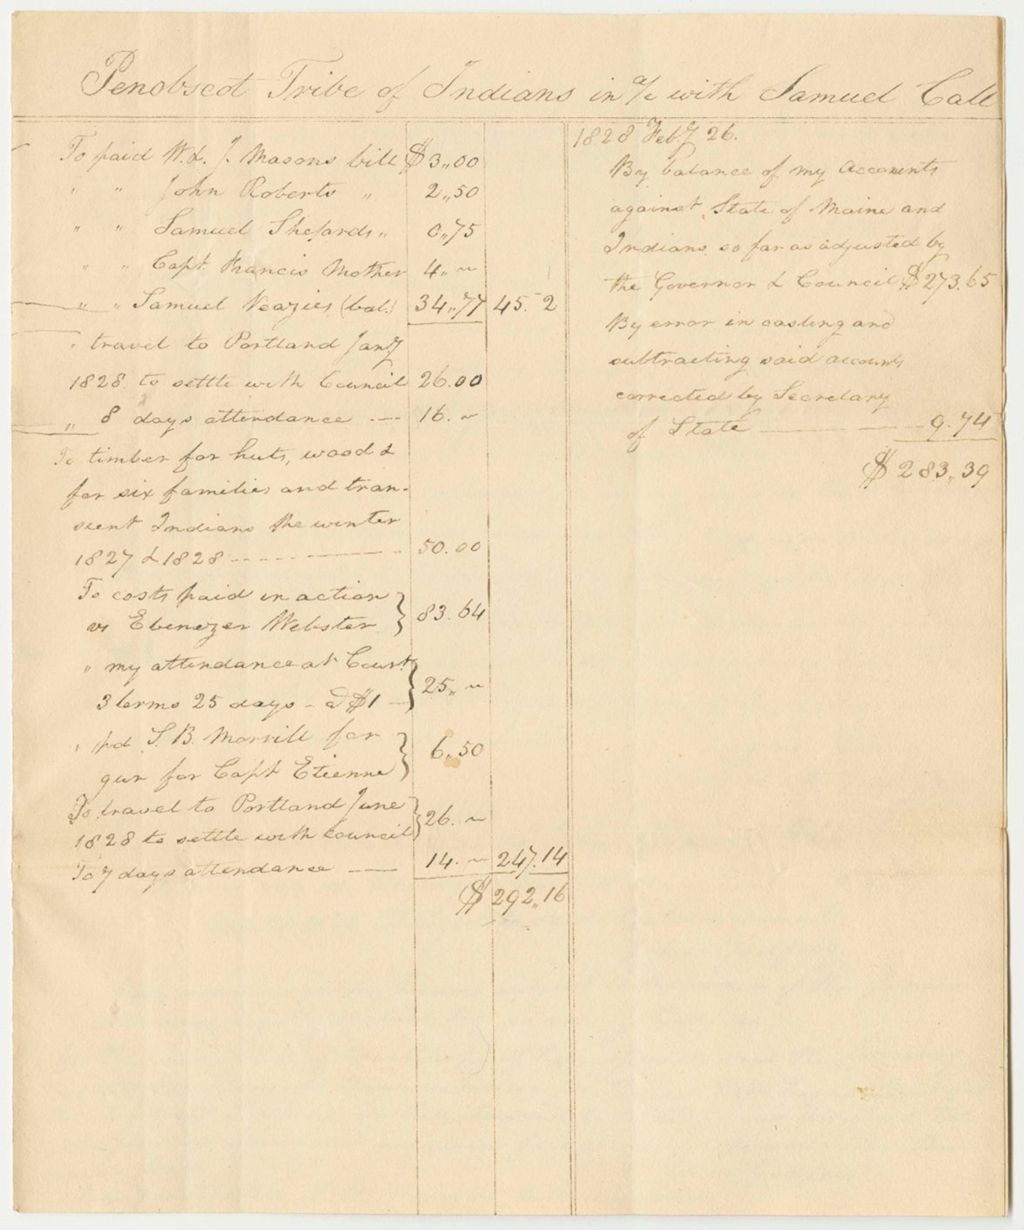 Penobscot Tribe of Indians in a/c with Samuel Call
To paid Wd. J. Masons bill $3,,00
" " John Roberts " 2,,50
" " Samuel Shepards " 0,,75
" " Capt. Francis Mother 4,, ~
" " Samuel Veazies (bal.) 34,,77 45. 2
" travel to Portland Jany
1828 to settle with Council 26.00
" 8 days attendance — 16. ~
To timber for huts, wood &
for six families and tran-
sient Indians the winter
1827 & 1828 — 50.00
To costs paid in action
vs Ebenezer Webster } 83.64
" my attendance at Court
3 terms 25 days - @ $1 } 25,, ~
" pd. S. B. Morrill for
gun for Capt Etienne } 6,,50
To travel to Portland June
1828 to settle with council } 26. ~
To 7 days attendance — 14. ~ 247.14
$ 292,,16
1828 Feby 26.
By balance of my Accounts
against State of Maine and
Indians so far as adjusted by
the Governor & Council $273.65
By error in casting and
subtracting said accounts
corrected by Secretary
of State — 9.74
$ 283,,39